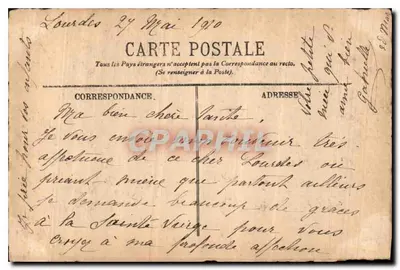 Lourdes 27 Mai 1910
CARTE POSTALE
Tous les Pays étrangers n'acceptent pas la Correspondance au recto.
(Se renseigner à la Poste).
CORRESPONDANCE
ADRESSE
Ma bien chère Tante,
Je vous envoie un bonjour très
affectueux de ce cher Lourdes où
priant mieux que partout ailleurs
je demande beaucoup de grâces
à la Sainte Vierge pour vous
croyez à ma profonde affection
Votre petite
nièce qui v
aime bien
Gabrielle
Je prie pour vos enfants
CPAPHIL